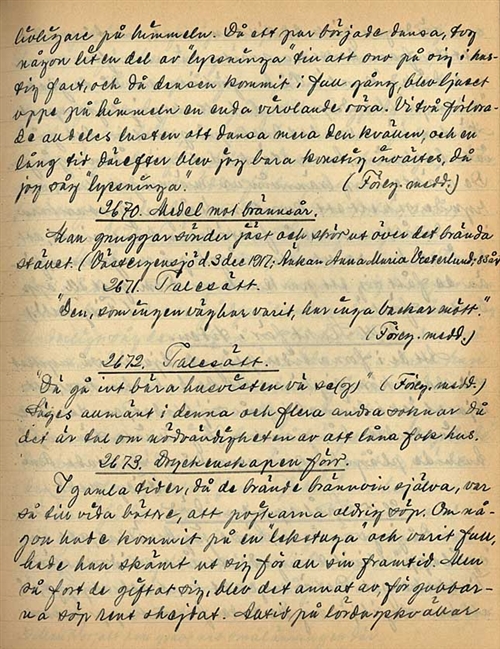 livligare på himmeln. Då ett par började dansa, tog
någon liten del av "lysninga" till att oro på sig i has-
tig fart, och då dansen kommit i full gång, blev ljuset
uppe på himmeln en enda virvlande röra. Vi två förlora-
de alldeles lusten att dansa mera den kvällen, och en
lång tid därefter blev jag bara konstig invärtes, då
jag såg "lysninga". (Föreg. medd.)
2670. Medel mot brännsår.
Man gnuggar sönder jäst och strör ut över det brända
stället. (Västergensjö d. 3 dec 1917; Änkan Anna Maria Vesterlund, 83 år
2671. Talesätt.
"Den, som ingen väg har varit, har inga backar mött."
(Föreg. medd.)
2672. Talesätt.
"Dä gå int bära husvisten vä se(g)" (Föreg. medd.)
Säges allmänt i denna och flera andra socknar då
det är tal om nödvändigheten av att låna folk hus.
2673. Dryckenskapen förr.
I gamla tider, då de brände brännvin själva, var
så till vida bättre, att pojkarna aldrig söp. Om nå-
gon hade kommit på en lekstuga och varit full,
hade han skämt ut sig för all sin framtid. Men
så fort de giftat sig, blev det annat av, för gubbar-
na söp rent ohejdat. Alltid på lördagskvällar